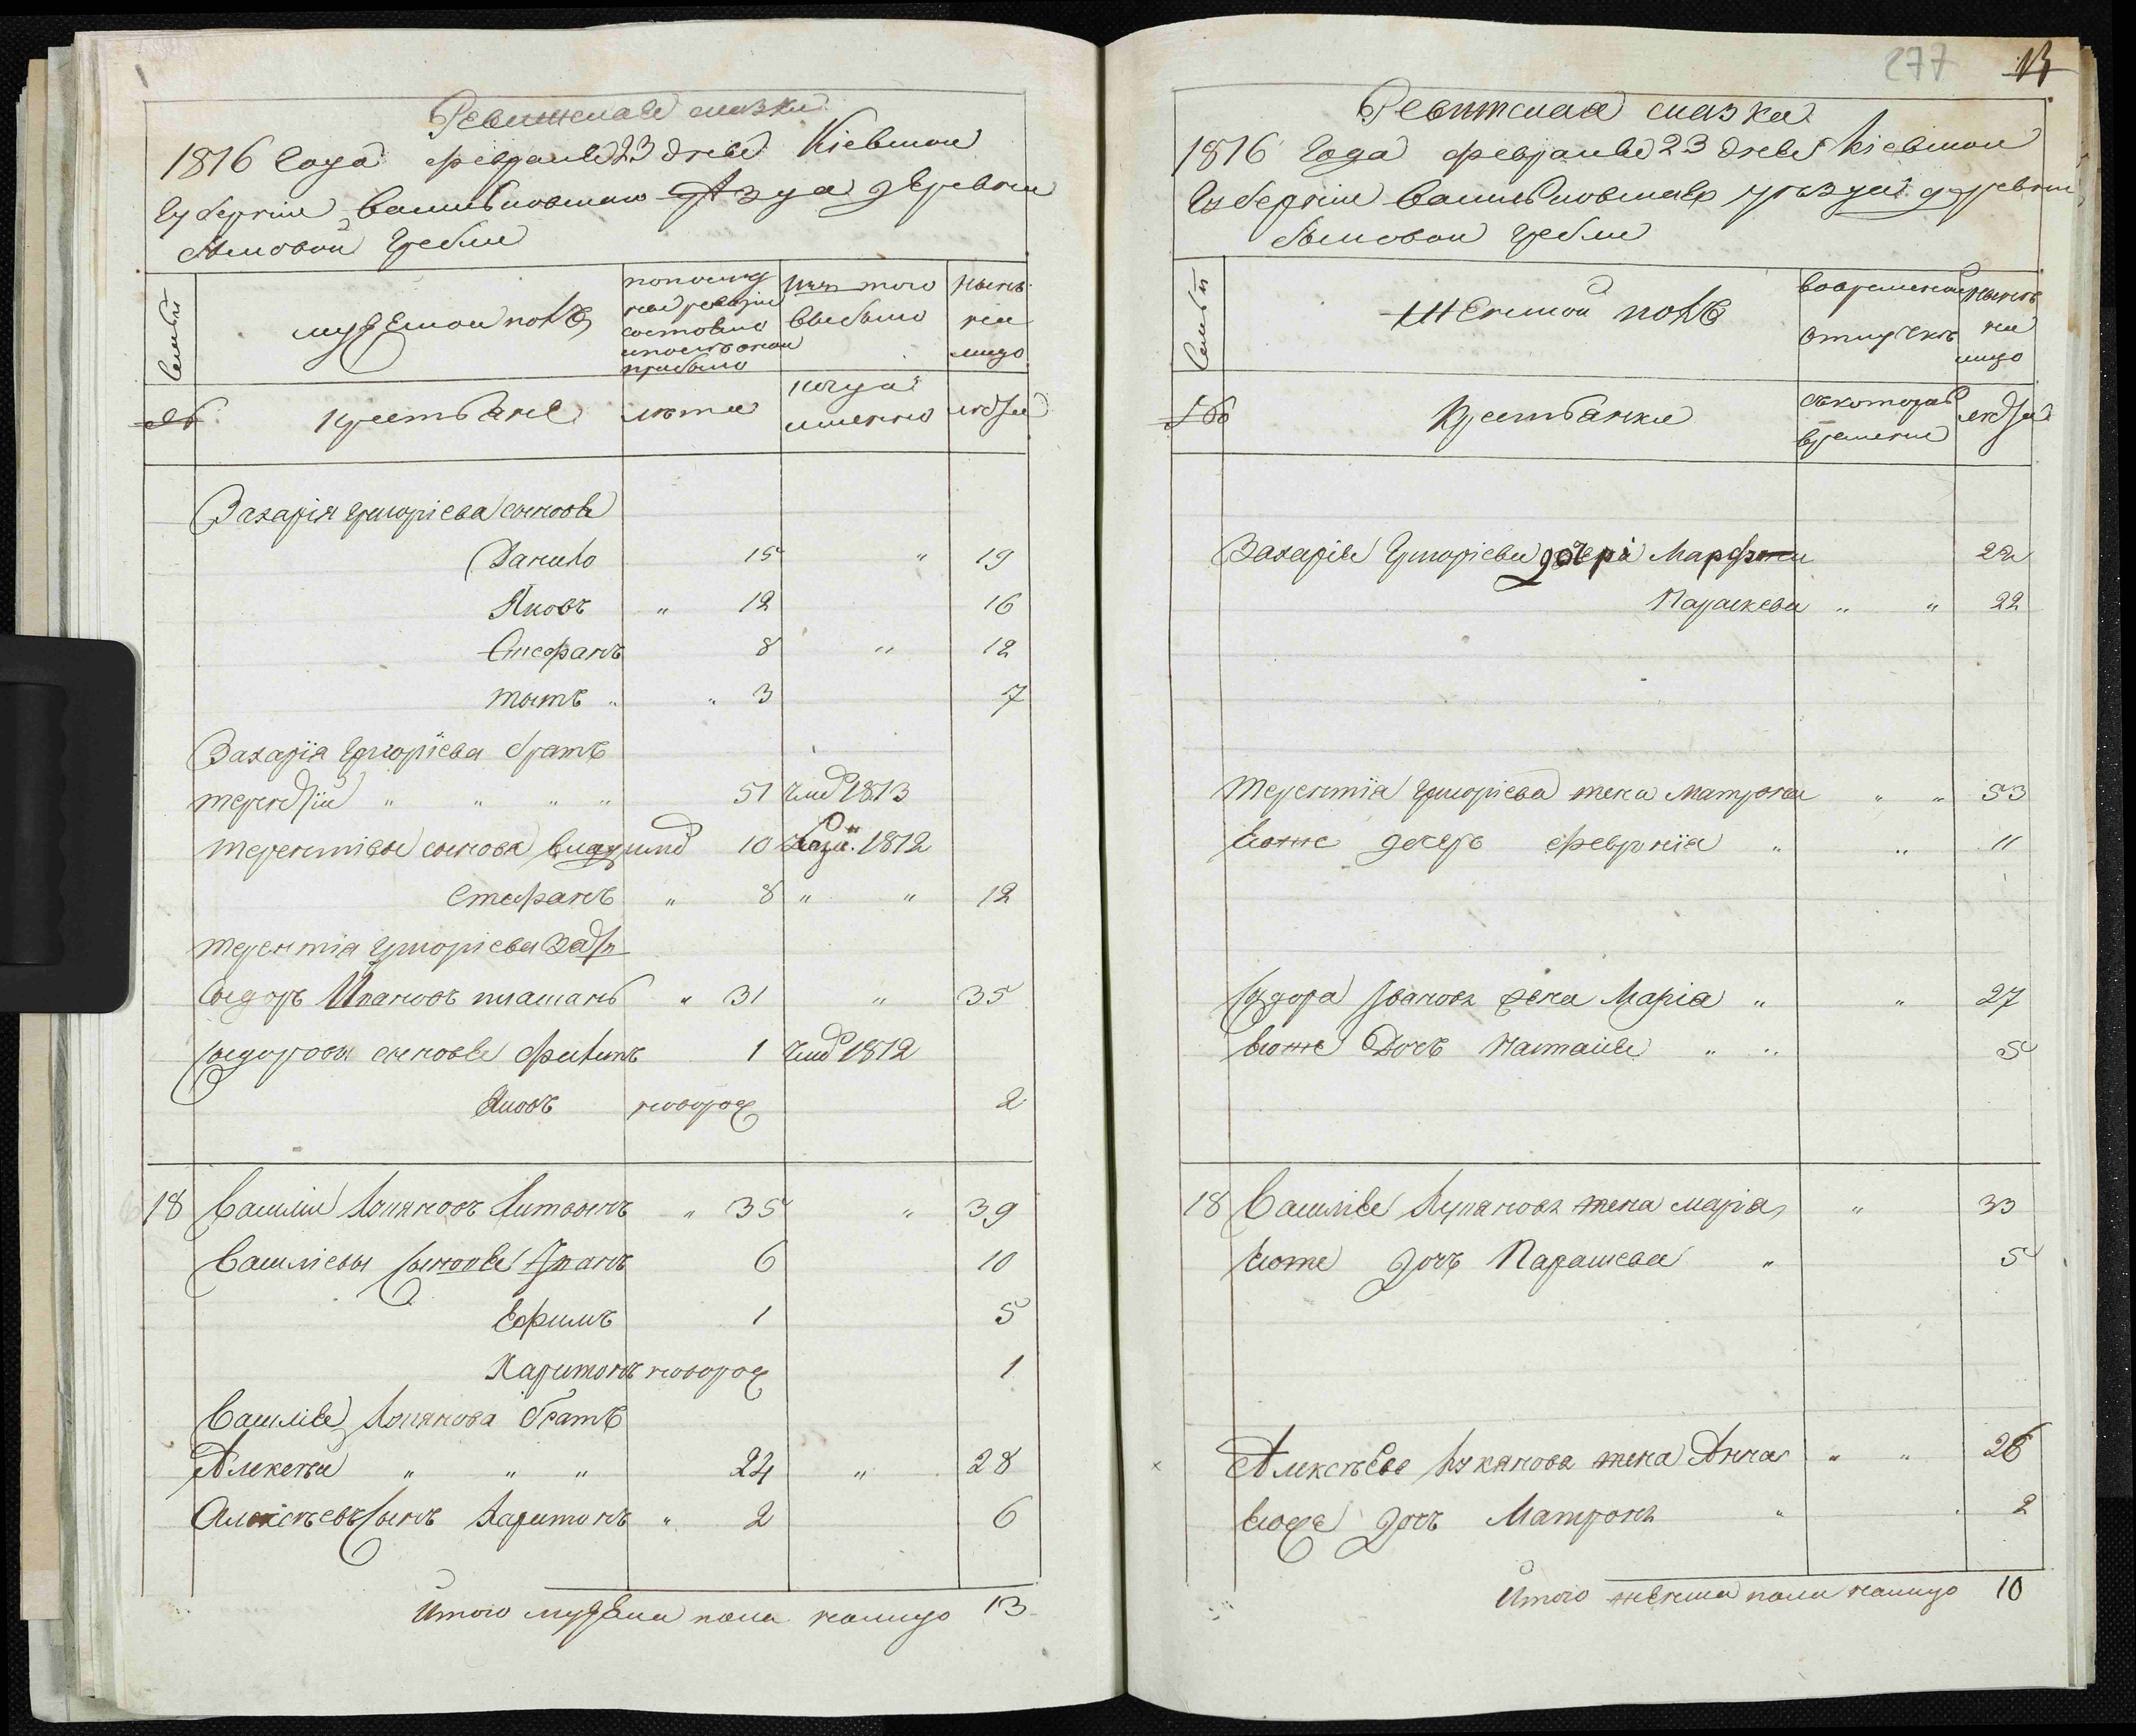 Ревижская сказка
1816 года февраля 23 дня Кіевской
Губерніи Васильковскаго уѣзда деревни
Яцковой Гребли
Семьи
мужеской полъ
попослед
ней ревизіи
состояло
и после оной
прибыло
изъ того
выбыло
ныне
на
лицо
№
крестьяне
лета
когда
именно
лета
Захарія Григоріева сыновя
Данило 15 " 19
Яковъ " 12 16
Стефанъ 8 " 12
Титъ " " 3 7
Захарія Григоріева братъ
Терентій " " " " 51 умр 1813
Терентіевы сыновя 10 1812
Стефанъ " 8 " " 12
Терентія Григоріева зять
Сидоръ Ивановъ " 31 " 35
Сидоровы сыновя Филипъ 1 умр 1812
Яковъ новорож 2
18 Василій Лукяновъ Литвинъ " 35 " 39
Василіевы сыновя Іванъ 6 10
Ефимъ 1 5
Харитонъ новорож 1
Василія Лукянова братъ
Алексей " " " 24 " 28
Алексѣевъ сынъ Харитонъ " 2 6
Итого мужеска пола налицо 13
277 13
Ревижская сказка
1816 года февраля 23 дня Кіевской
Губерніи Васильковскаго уѣзда деревни
Яцковой Гребли
Семьи
Женской полъ
вовременной
отлучкѣ
ныне
на
лицо
№
Крестьянки
съкотораго
времени
лета
Захарія Григоріева дочери Марфа 22
Параскева " " 22
Терентія Григоріева жена Матрона " " 53
Егоже дочерь Февронія " " 11
Сидора Іванова жена Марія " " 27
Егоже дочь Настасия " " 5
18 Василія Лукянова жена Марія " 33
Егоже дочь Параскева " 5
Алексѣева Лукянова жена Анна " " 26
Егоже дочь Матрона " " 2
Итого женска пола налицо 10